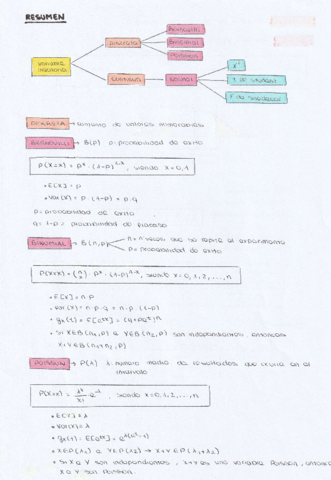 RESUMEN
Bernoulli
Discreta
Binomial
Poisson
variable
aleatoria
continua
normal
χ²
t de student
F de snedecor
DISCRETA → conjunto de valores numerables
BERNOULLI → B(p) p: probabilidad de exito
P(X=x) = pˣ · (1-p)¹⁻ˣ, siendo x=0,1
• E[X] = p
• Var(X) = p · (1-p) = p · q
p = probabilidad de exito
q = 1-p = probabilidad de fracaso
BINOMIAL → B(n,p)
n = nº veces que se repite el experimento
p = probabilidad de exito
P(X=x) = (n x) · pˣ · (1-p)ⁿ⁻ˣ, siendo x=0,1,2,...,n
• E[X] = n·p
• Var(X) = n·p·q = n·p·(1-p)
• si X∈B(n₁,p) e Y∈B(n₂,p) son independientes, entonces
X+Y∈B(n₁+n₂,p)
POISSON → P(λ) λ: numero medio de resultados que ocurre en el
intervalo
P(X=x) = λˣ/x! · e^-λ, siendo x=0,1,2,...,n
• E[X] = λ
• Var(X) = λ
• X∈P(λ₁) e Y∈P(λ₂) → X+Y∈P(λ₁+λ₂)
• si X e Y son independientes, X+Y es una variable Poisson, entonces
X e Y son Poisson.